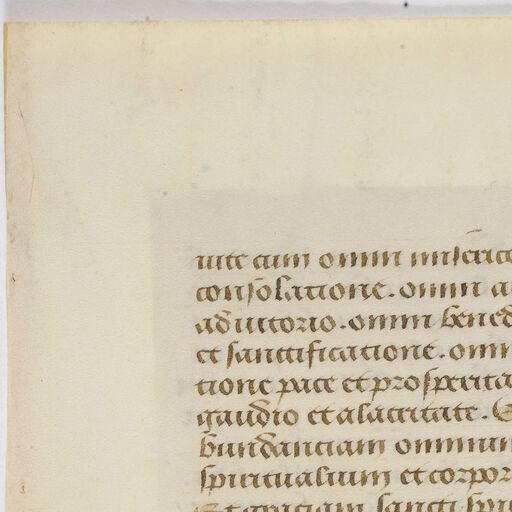 uite cum omni misẽrico
consolatione. omni a
adiutorio. omni bened
et sanctificatione. omni
tione pace et prosperita
gaudio et alacritate. E
bundanciam omnium
spiritualium et corpor
Et graciam sancti spiri